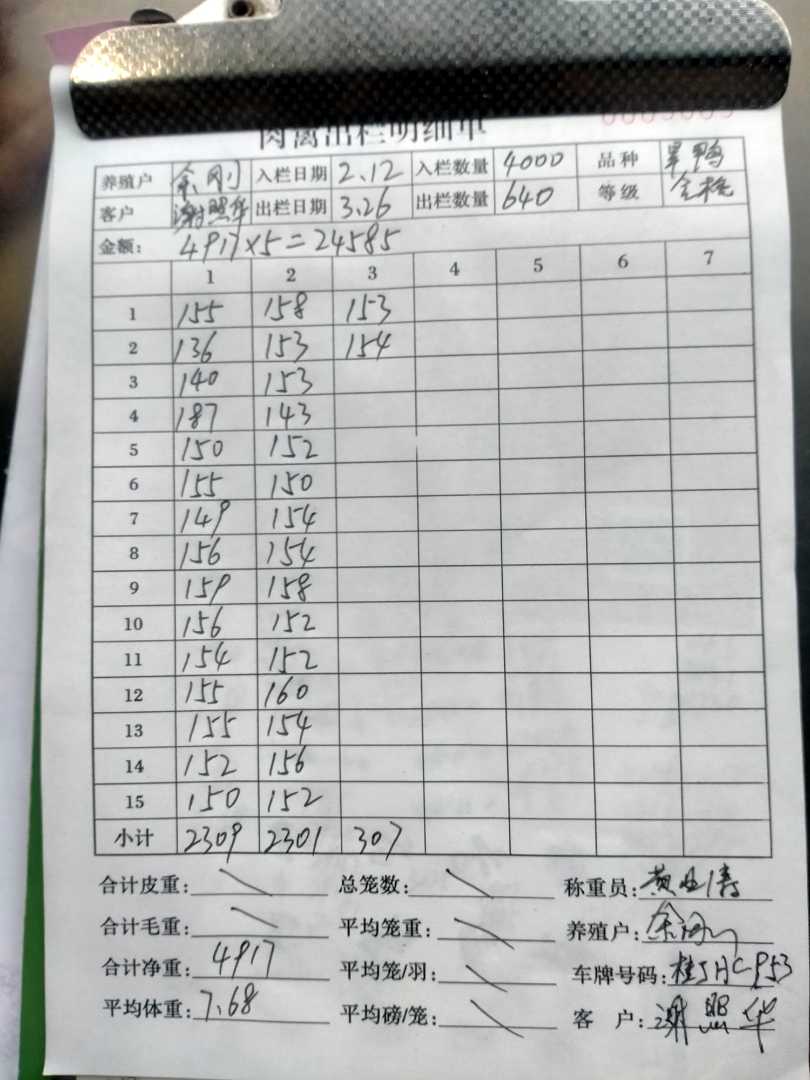 肉禽出栏明细单
养殖户 余刚 入栏日期 2.12 入栏数量 4000 品种 旱鸭
客户 谢照华 出栏日期 3.26 出栏数量 640 等级 合格
金额: 4917×5=24585
1 2 3 4 5 6 7
1 155 158 153
2 136 153 154
3 140 153
4 187 143
5 150 152
6 155 150
7 149 154
8 156 154
9 159 158
10 156 152
11 154 152
12 155 160
13 155 154
14 152 156
15 150 152
小计 2309 2301 307
合计皮重: 总笼数: 称重员:
合计毛重: 平均笼重: 养殖户: 余刚
合计净重: 4917 平均笼/羽: 车牌号码:
平均体重: 7.68 平均磅/笼: 客 户: 谢照华